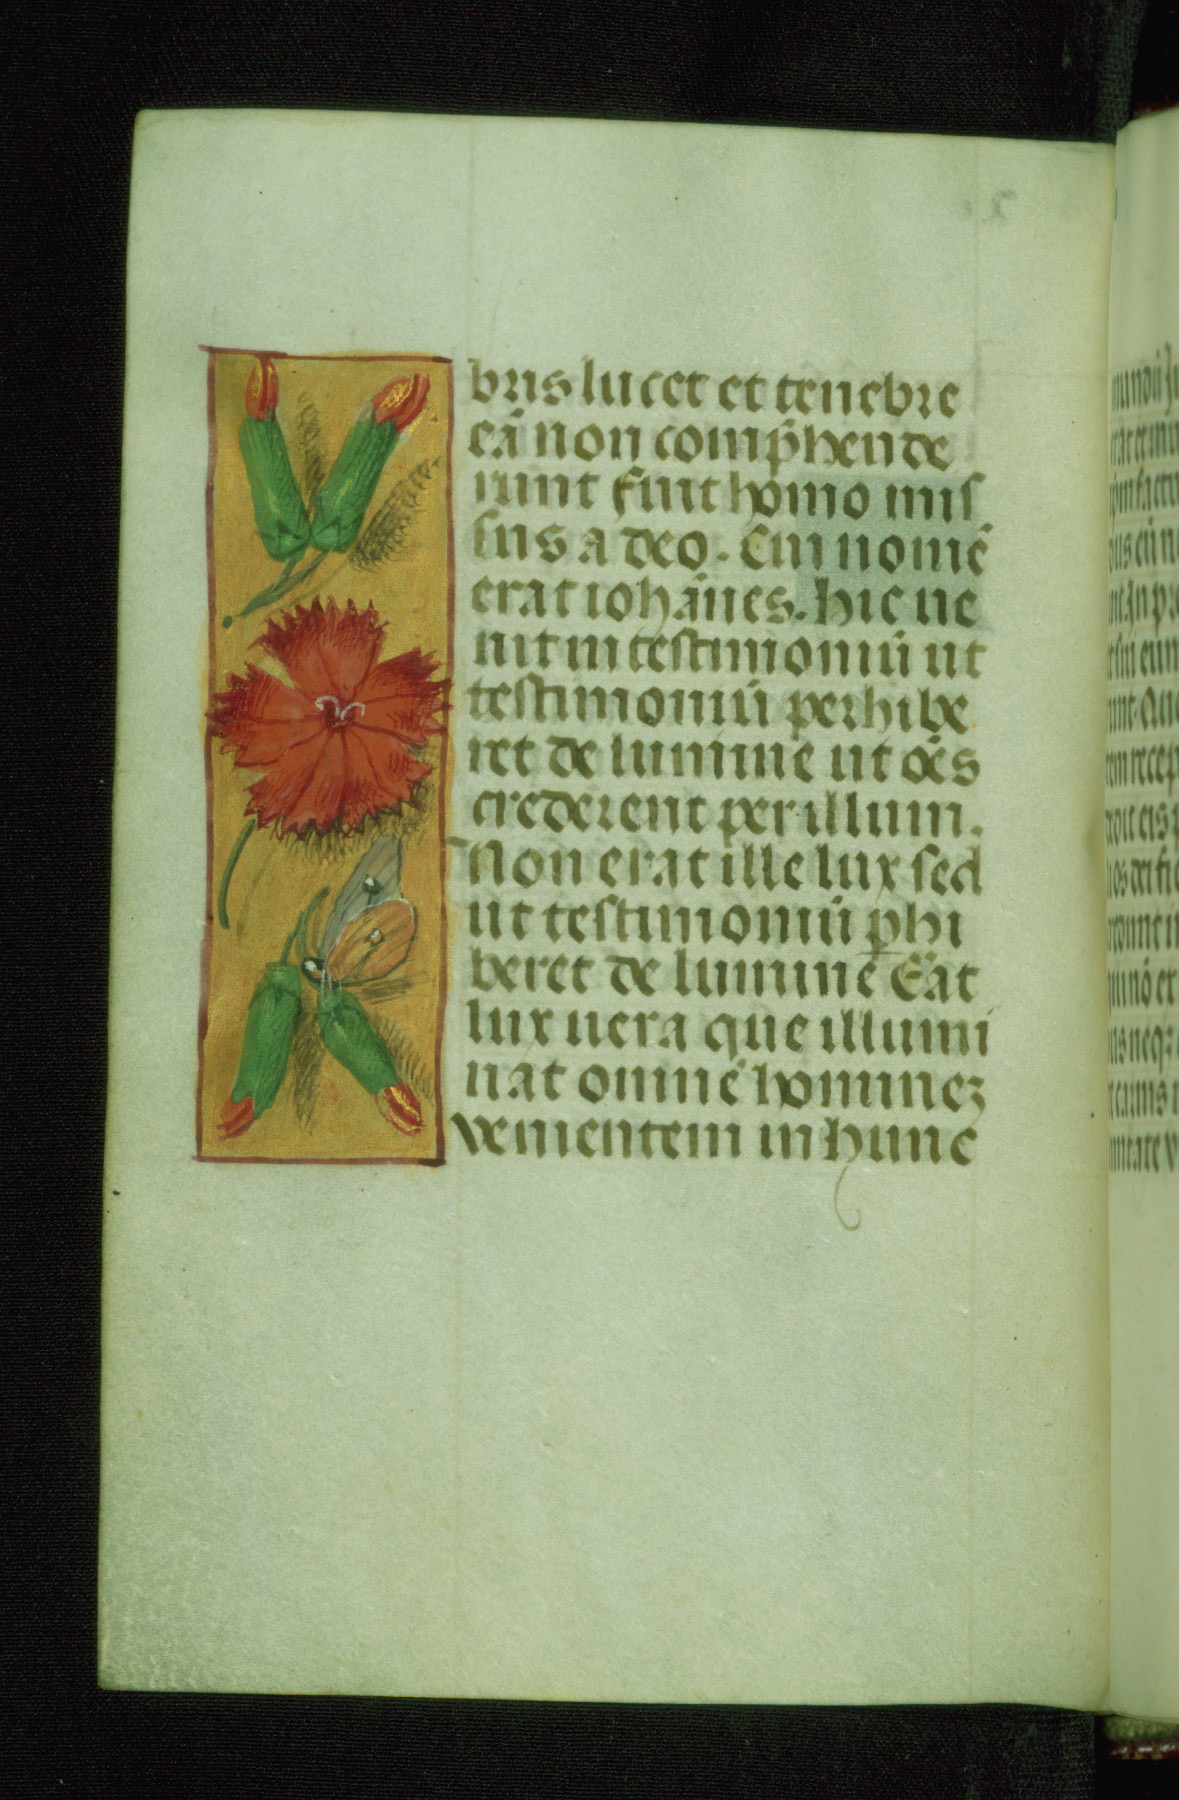 bris lucet et tenebre
eā non comp̄hende
runt Fuit homo mis
sus a deo. Cui nomē
erat iohānes. hic ue
nit in testimoniū ut
testimoniū perhibe
ret de lumine ut oēs
crederent per illum.
Non erat ille lux sed
ut testimoniū ꝑhi
beret de lumine Eāt
lux uera que illumi
nat omnē hominez
venientem in hunc